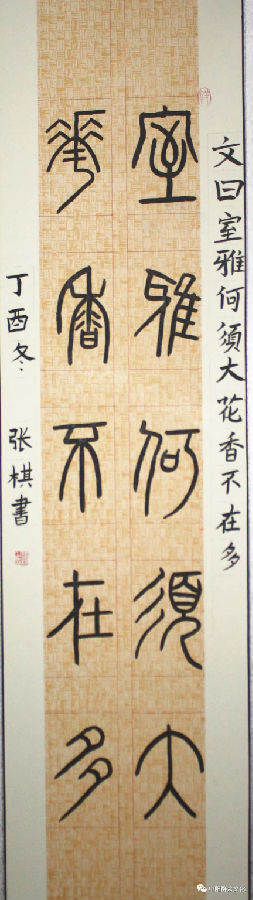 文曰室雅何須大花香不在多
室雅何須大
花香不在多
丁酉冬 张棋書